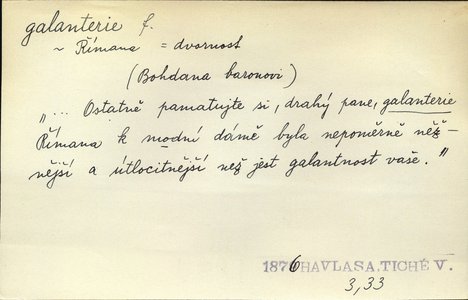 galanterie f.
~ Římana = dvornost
(Bohdana baronovi)
„... Ostatně pamatujte si, drahý pane, galanterie
Římana k modní dámě byla nepoměrně něž-
nější a útlocitnější než jest galantnost vaše."
1876 HAVLASA. TICHÉ V.
3,33